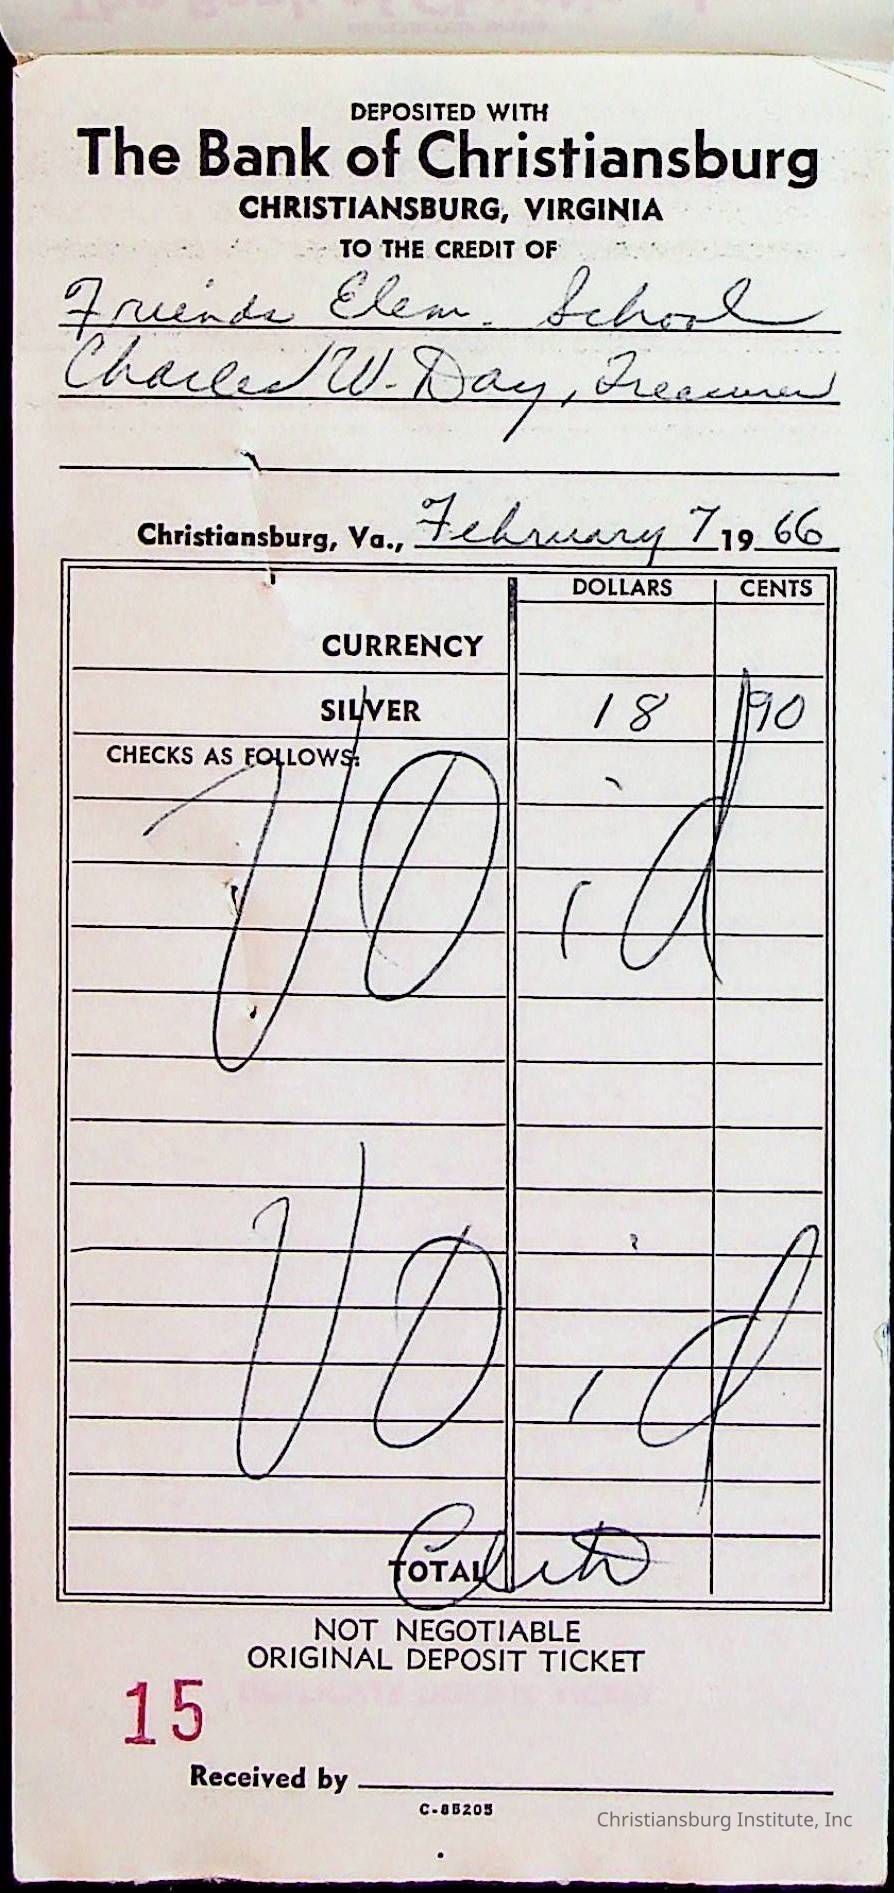 DEPOSITED WITH
The Bank of Christiansburg
CHRISTIANSBURG, VIRGINIA
TO THE CREDIT OF
Friends Elem. School
Charles W. Day, Treasurer
Christiansburg, Va., February 7 19 66
DOLLARS CENTS
CURRENCY
SILVER 18 90
CHECKS AS FOLLOWS:
Void
Void
TOTAL
NOT NEGOTIABLE
ORIGINAL DEPOSIT TICKET
15
Received by
C-85205
Christiansburg Institute, Inc